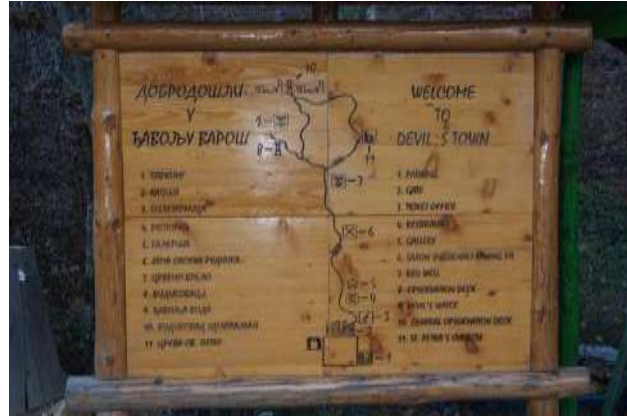 ДОБРОДОШЛИ
У
ЂАВОЉУ ВАРОШ
1. ПАРКИНГ
2. КАПИЈА
4. РЕСТОРАН
5. ГАЛЕРИЈА
7. ЦРВЕНО ВРЕЛО
8. ВИДИКОВАЦ
9. ЂАВОЉА ВОДА
10. ВИДИКОВАЦ ЦЕНТРАЛНИ
11. ЦРКВА СВ. ПЕТКЕ
10
9
8
11
7
6
5
4
3
1
WELCOME
TO
DEVIL,S TOWN
1. PARKING
2. GATE
3. TICKET OFFICE
4. RESTAURANT
5. GALLERY
7. RED WELL
8. OBSERVATION DECK
9. DEVIL'S WATER
10. CENTRAL OBSERVATION DECK
11. ST. PETKA'S CHURCH